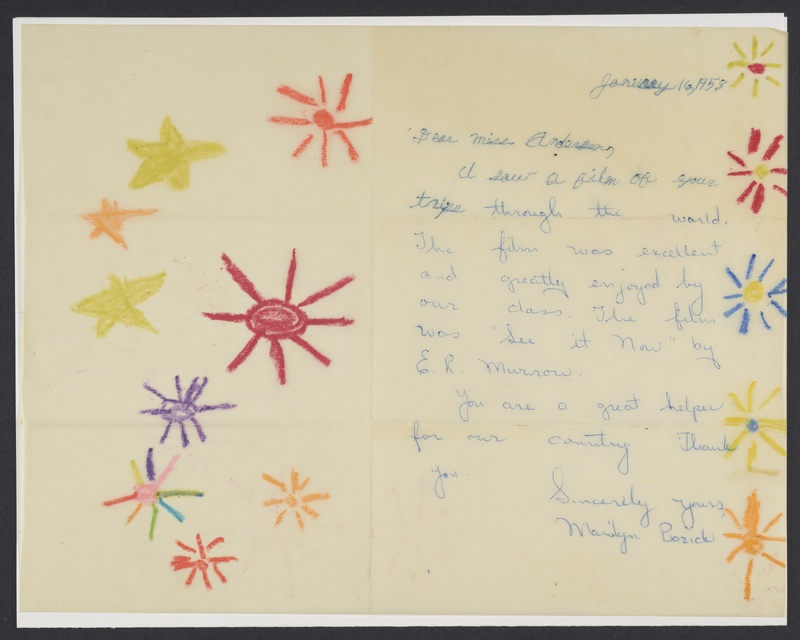 January 16, 1958
Dear Miss Anderson,
I saw a film of your
trips through the world.
The film was excellent
and greatly enjoyed by
our class. The film
was "See it Now" by
E. R. Murrow.
You are a great helper
for our country Thank
you.
Sincerely yours,
Marilyn Bozick